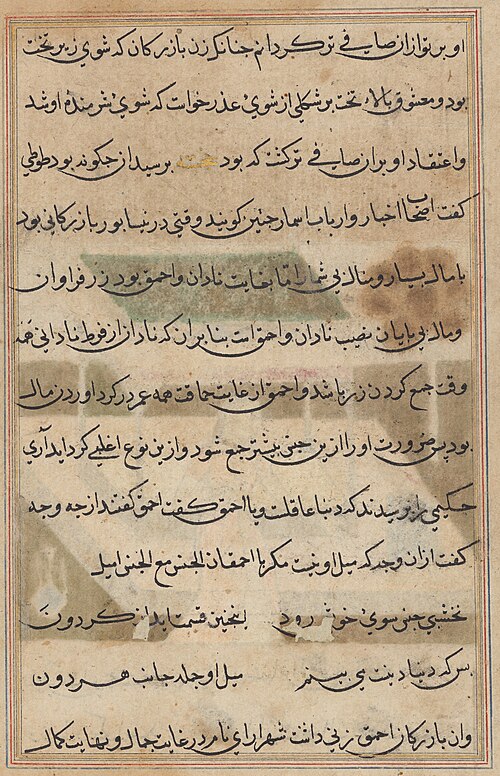 او بر تو ازان صافی تر کردانم چنانکه زن بازرکان که شوی زیر تخت
بود و معشوق بالاء تخت بر شکلی از شوی عذر خواست که شوی شرمنده او شد
و اعتقاد او بران صافی تر کشت که بود خجسته برسید ان چکونه بود طوطی
کفت اصحاب اخبار و ارباب اسمار چنین کویند وقتی در نیسابور بازرکانی بود
با مال بسیار و منال بی شمار اما بغایت نادان و احمق بود زر فراوان
و مال بی پایان نصیب نادان و احمق است بنا بران که نادان از فرط نادانی همه
وقت جمع کردن زر باشد و احمق از غایت حماقت همه عمر در کرد اوردن مال
بود پس ضرورت او را ازین جنس بیشتر جمع شود و ازین نوع اغلبی کرد اید آری
حکیمی را برسیدند که دنیا عاقلست و یا احمق کفت احمق کفتند از چه وجه
کفت ازان وجه که میل او نیست مکر با احمقان الجنس مع الجنس امیل
نخشبی جنس سوی خویش رود اینچنین قسمت اید از کردون
بس که دنیا دنیست می بینم میل او جمله جانب هر دون
وان بازرکان احمق زنی داشت شهرارای نام در غایت جمال و نهایت کمال